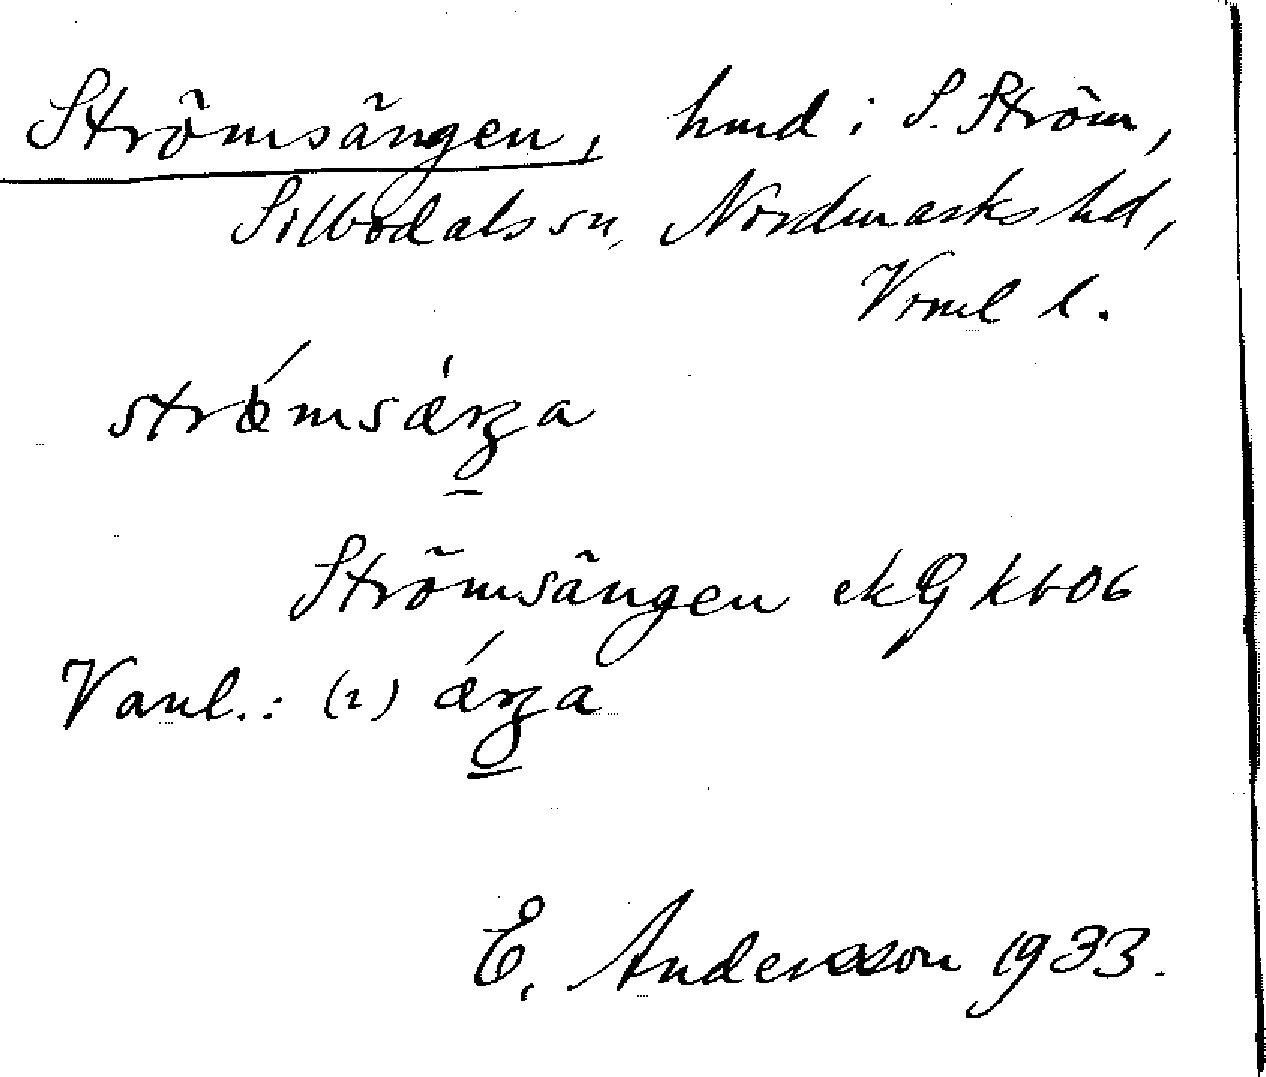 Strömsängen, hmd i S. Ström,
Silbodals sn, Nordmarks hd,
Vrml l.
Strömsängen ekG kb06
Vanl.: (2)
E. Andersson 1933.